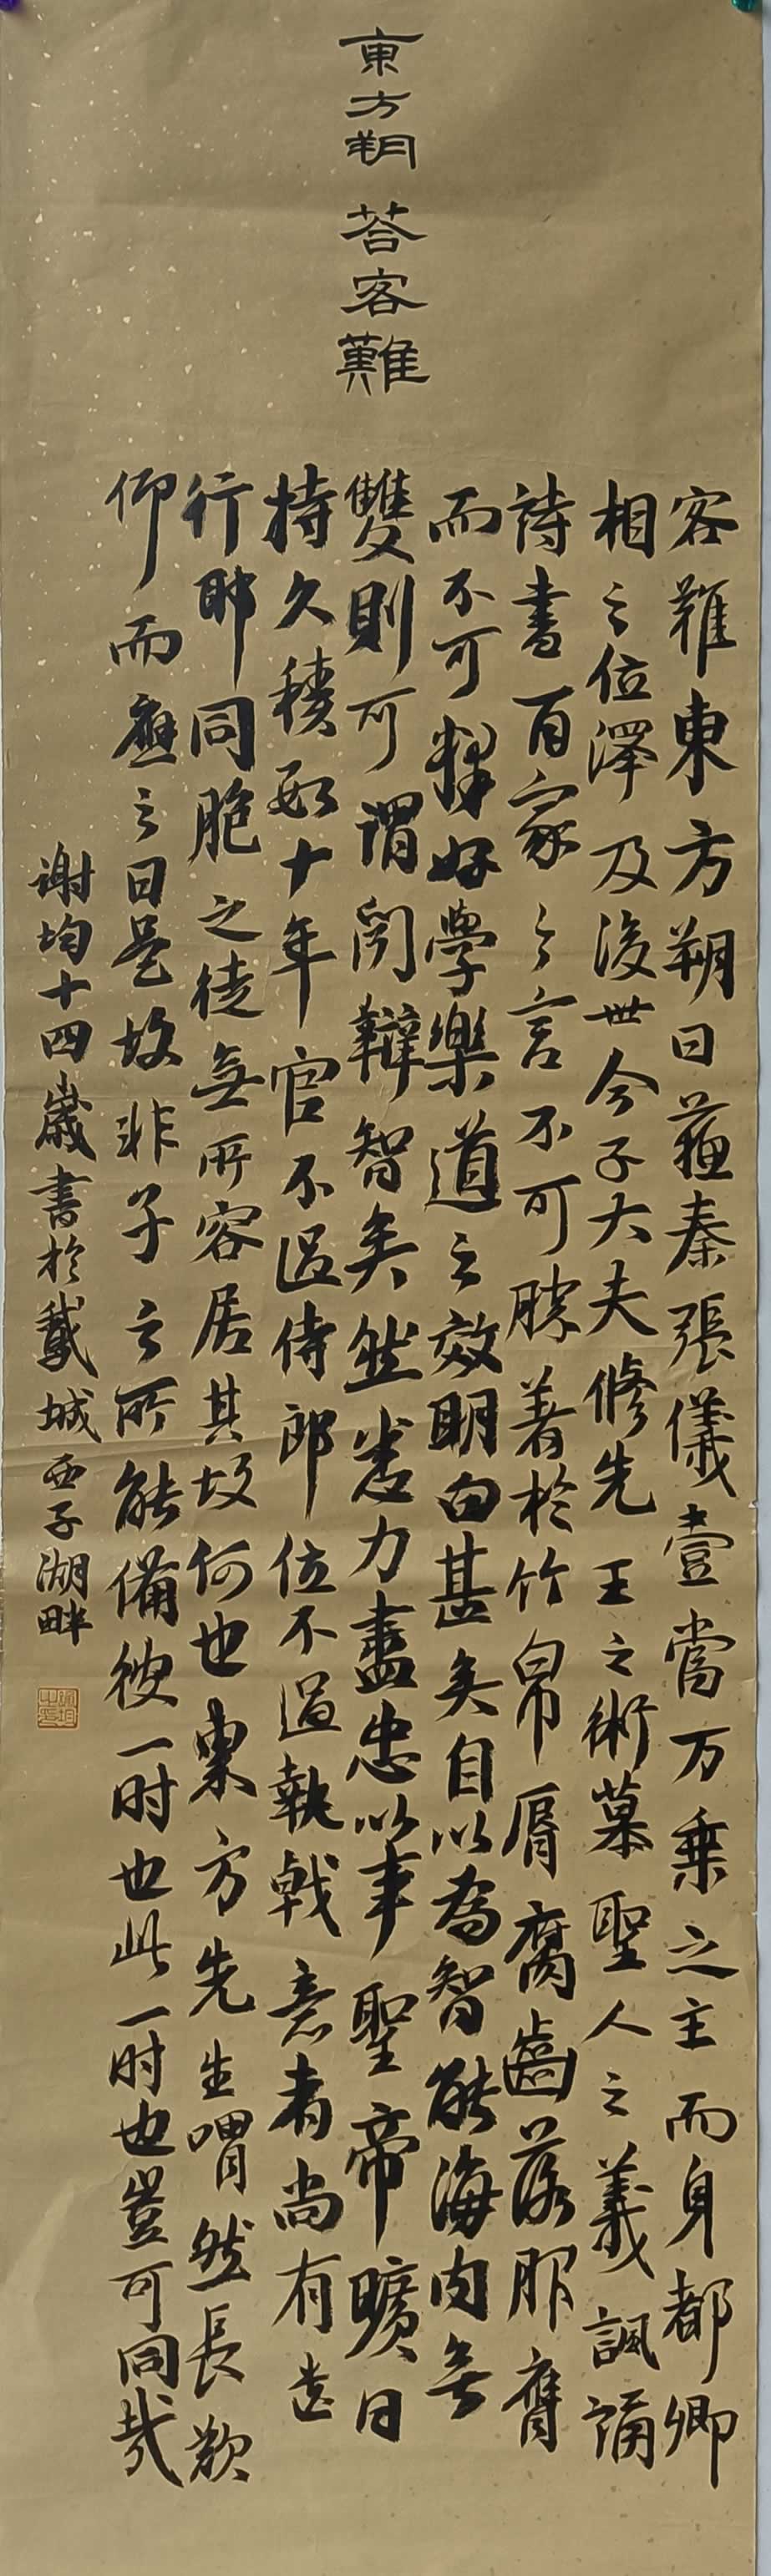 東方朔 荅客難
客難東方朔曰蘇秦張儀壹當万乗之主而身都卿
相之位澤及後世今子大夫修先王之術慕聖人之義諷誦
詩書百家之言不可勝著於竹帛脣腐齒落服膺
而不可釋好學樂道之效明白甚矣自以為智能海内無
雙則可謂閎辯智矣然悉力盡忠以事聖帝曠日
持久積數十年官不過侍郎位不過執戟意者尚有遺
行耶同胞之徒無所容居其故何也東方先生喟然長歎
仰而應之曰是故非子之所能備彼一时也此一时也豈可同哉
谢均十四歲書於 城西子湖畔